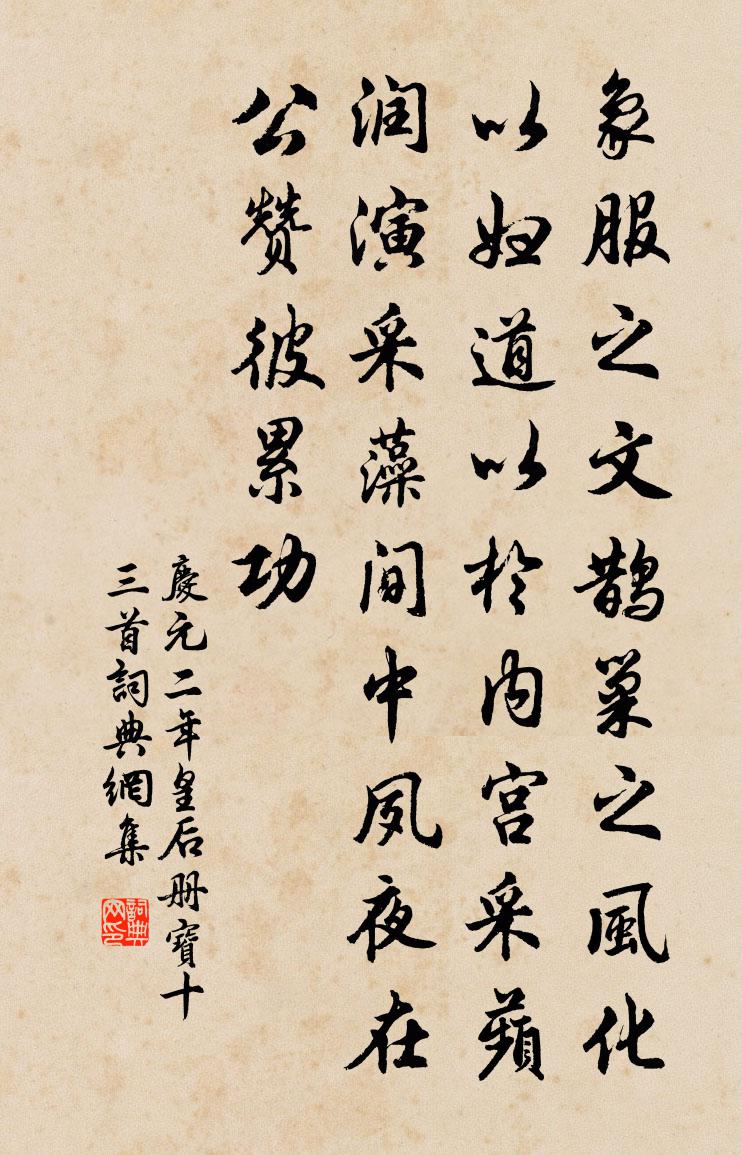 象服之文鵲巢之風化
以妇道以於内宫采蘋
润演采藻间中夙夜在
公赞彼累功
慶元二年皇后册寶十
三首詞典網集
詞典
网印